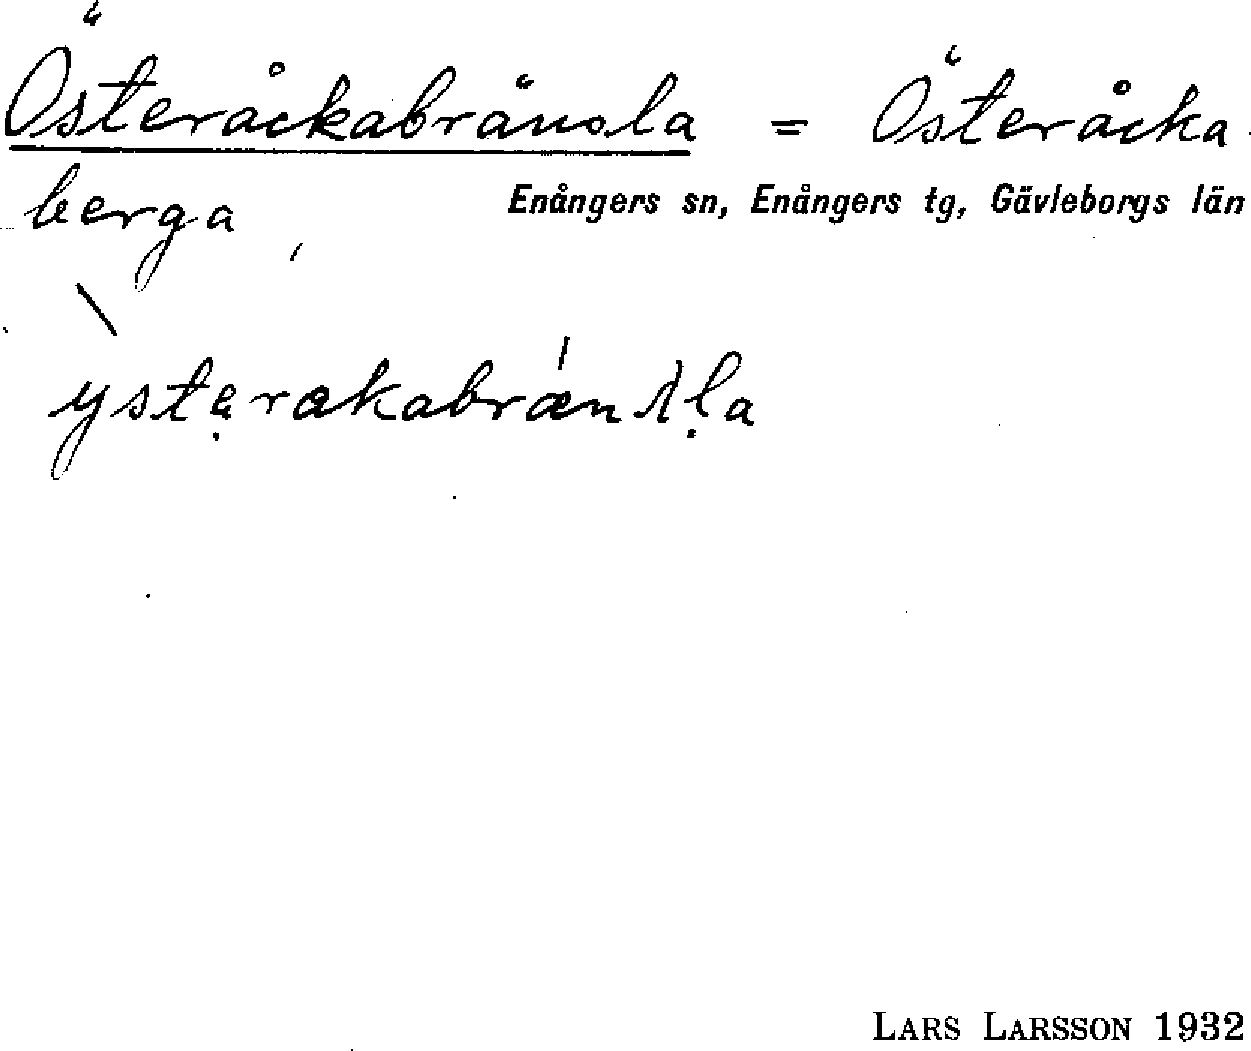 Österåckabränsla = Österåcka
berga,
Enångers sn, Enångers tg, Gävleborgs län
ysterakabrænsla
LARS LARSSON 1932